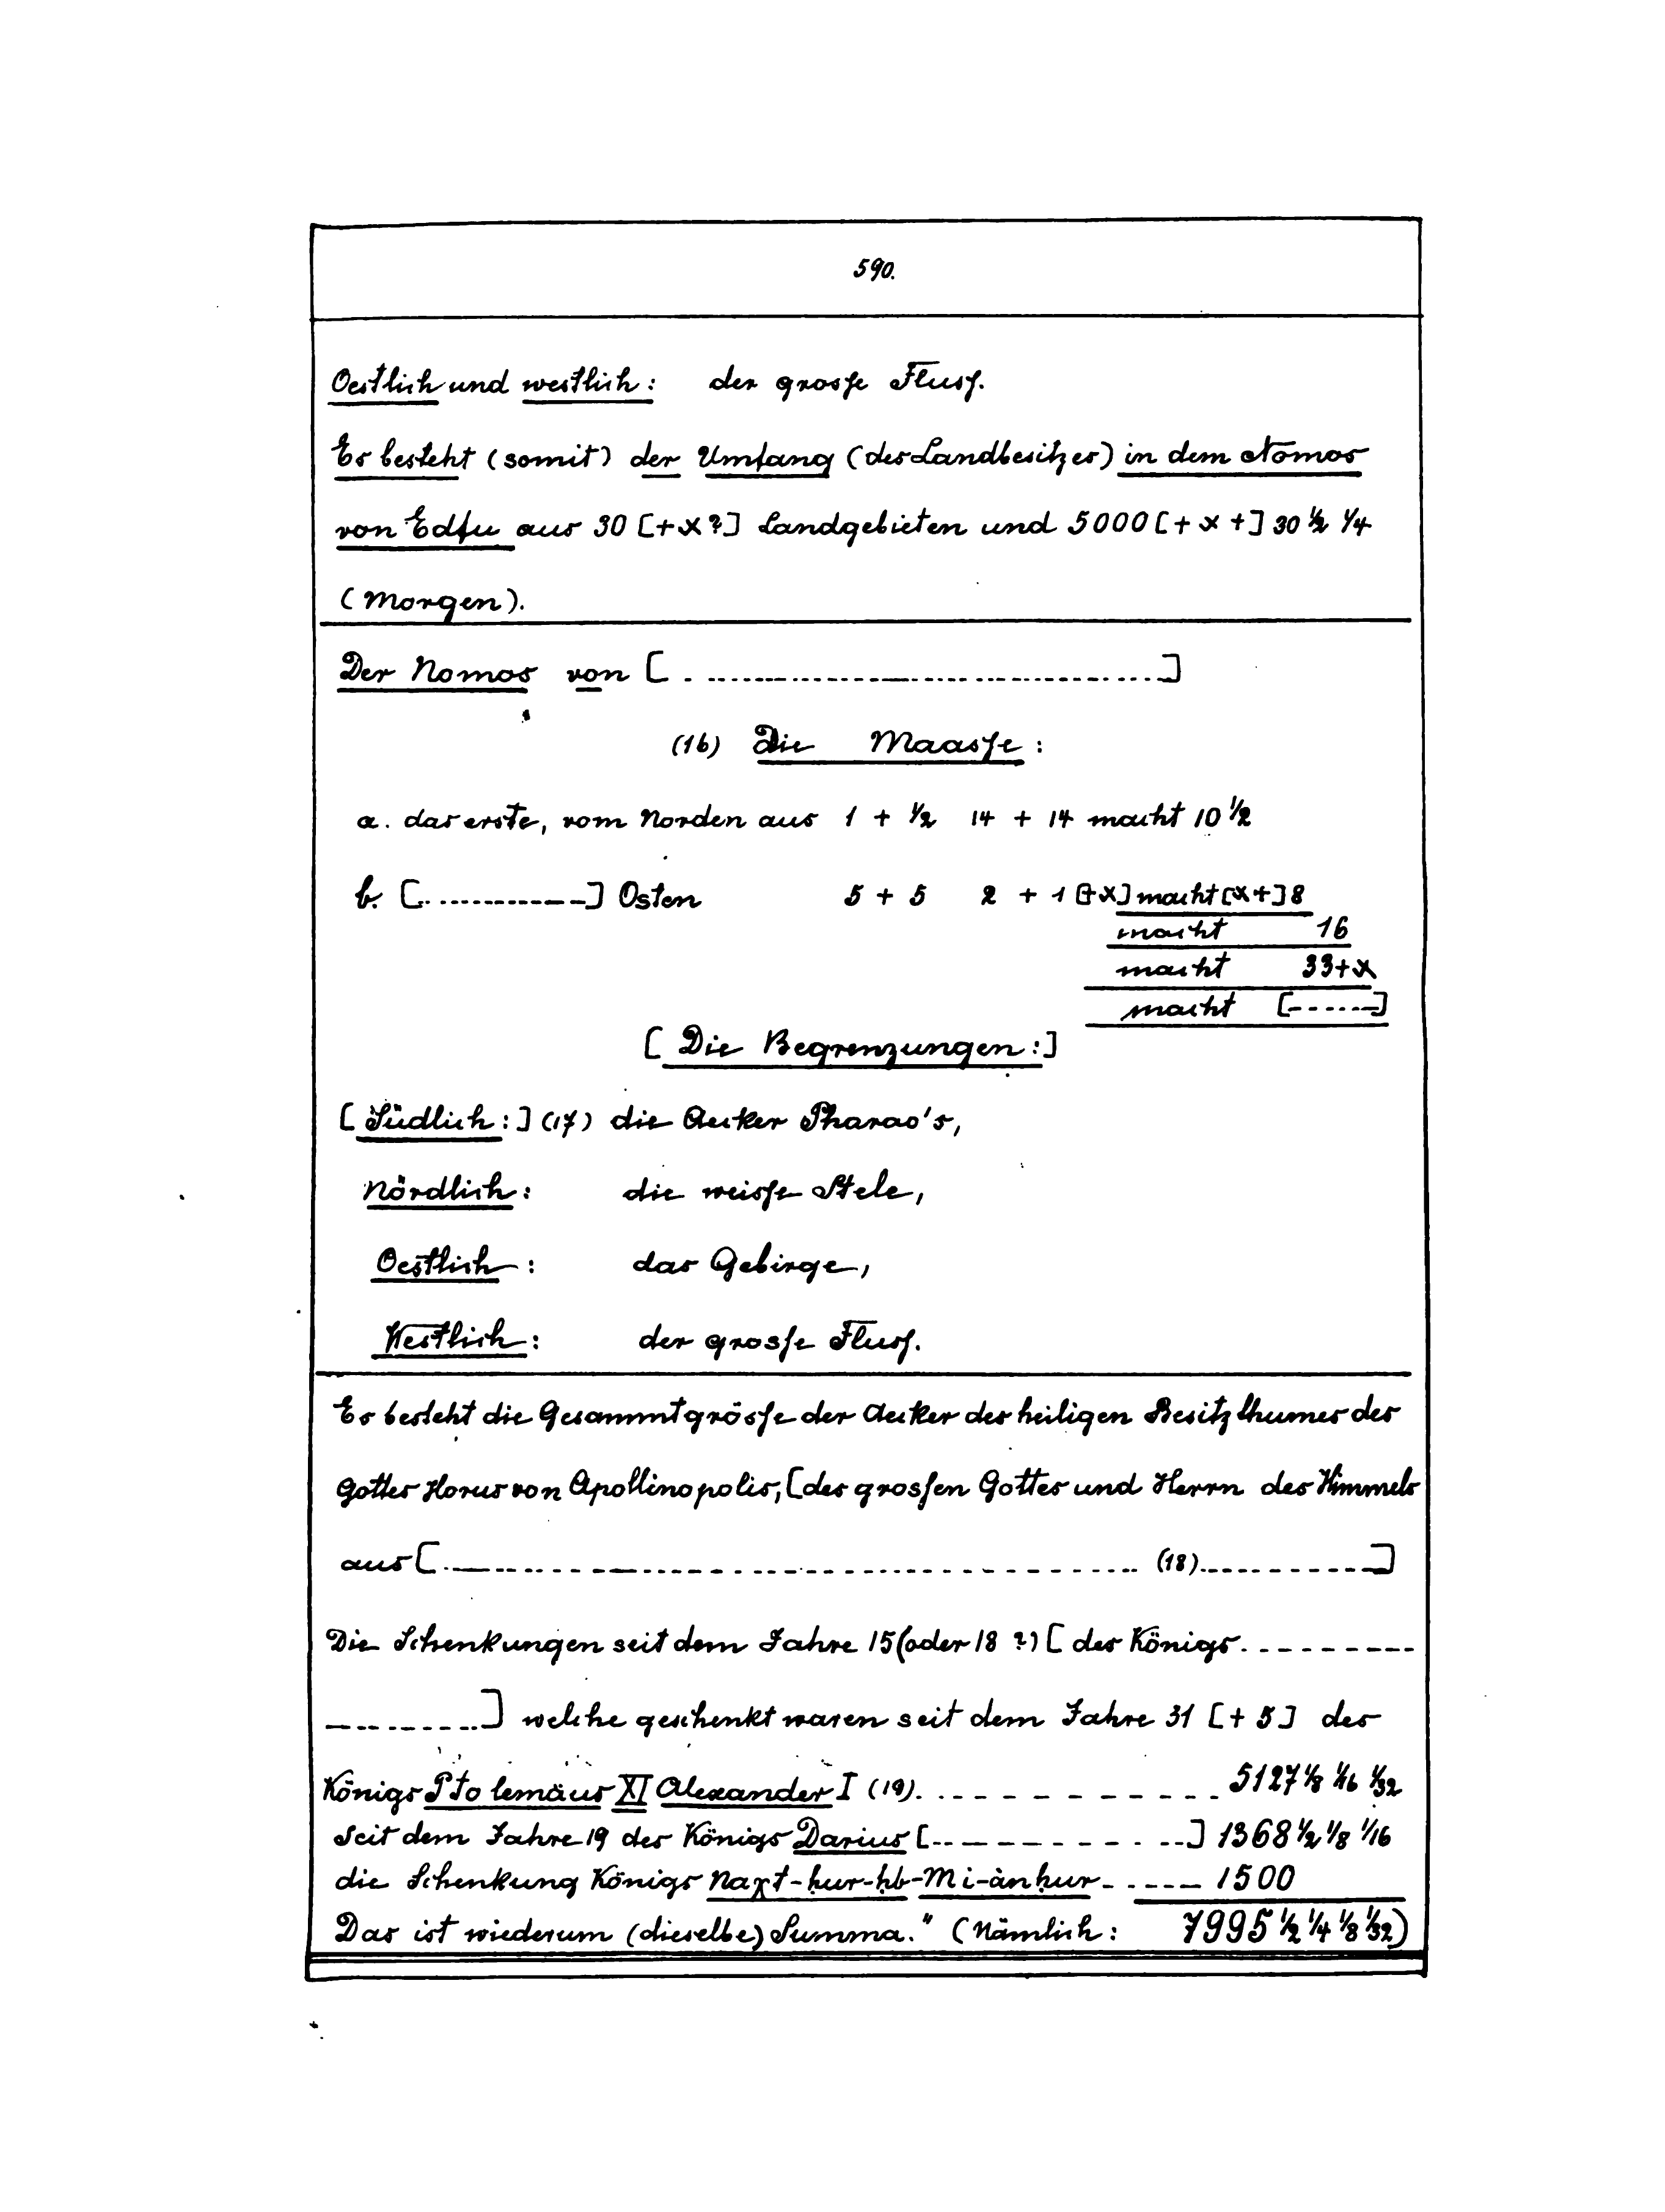 590.
Oestlich und westlich: der grosse Fluss.
Es besteht (somit) der Umfang (des Landbesitzes) in dem Nomos
von Edfu aus 30 [+x?] Landgebieten und 5000 [+ x +] 30 ½ ¼
(Morgen).
Der Nomos von [. .............................................]
(16) Die Maasse:
a. das erste, vom Norden aus 1 + ½ 14 + 14 macht 10 ½
b. [...............] Osten 5 + 5 2 + 1 [+x] macht [x+] 8
macht 16
macht 33+x
macht [.......]
[Die Begrenzungen:]
[Südlich:] (17) die Aecker Pharao's,
Nördlich: die weisse Stele,
Oestlich: das Gebirge,
Westlich: der grosse Fluss.
Es besteht die Gesammtgrösse der Aecker des heiligen Besitzthumes des
Gottes Horus von Apollinopolis, [des grossen Gottes und Herrn des Himmels
aus [............................................................ (18)..............]
Die Schenkungen seit dem Jahre 15 (oder 18 ?) [des Königs..........
............] welche geschenkt waren seit dem Jahre 31 [+ 5] des
Königs Ptolemäus XI Alexander I (19)...................... 5127 ⅛ 1/16 1/32
Seit dem Jahre 19 des Königs Darius [................] 1368 ½ ⅛ 1/16
die Schenkung Königs Naχt-ḥur-ḥb-Mi-ànḥur....... 1500
Das ist wiederum (dieselbe) Summa." (Nämlich: 7995 ½ ¼ ⅛ 1/32)